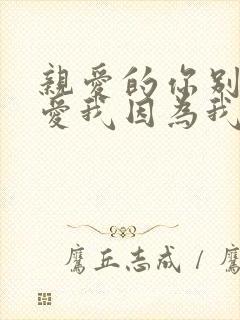 親愛的你别
愛我因為我
鷹丘志成 / 鷹